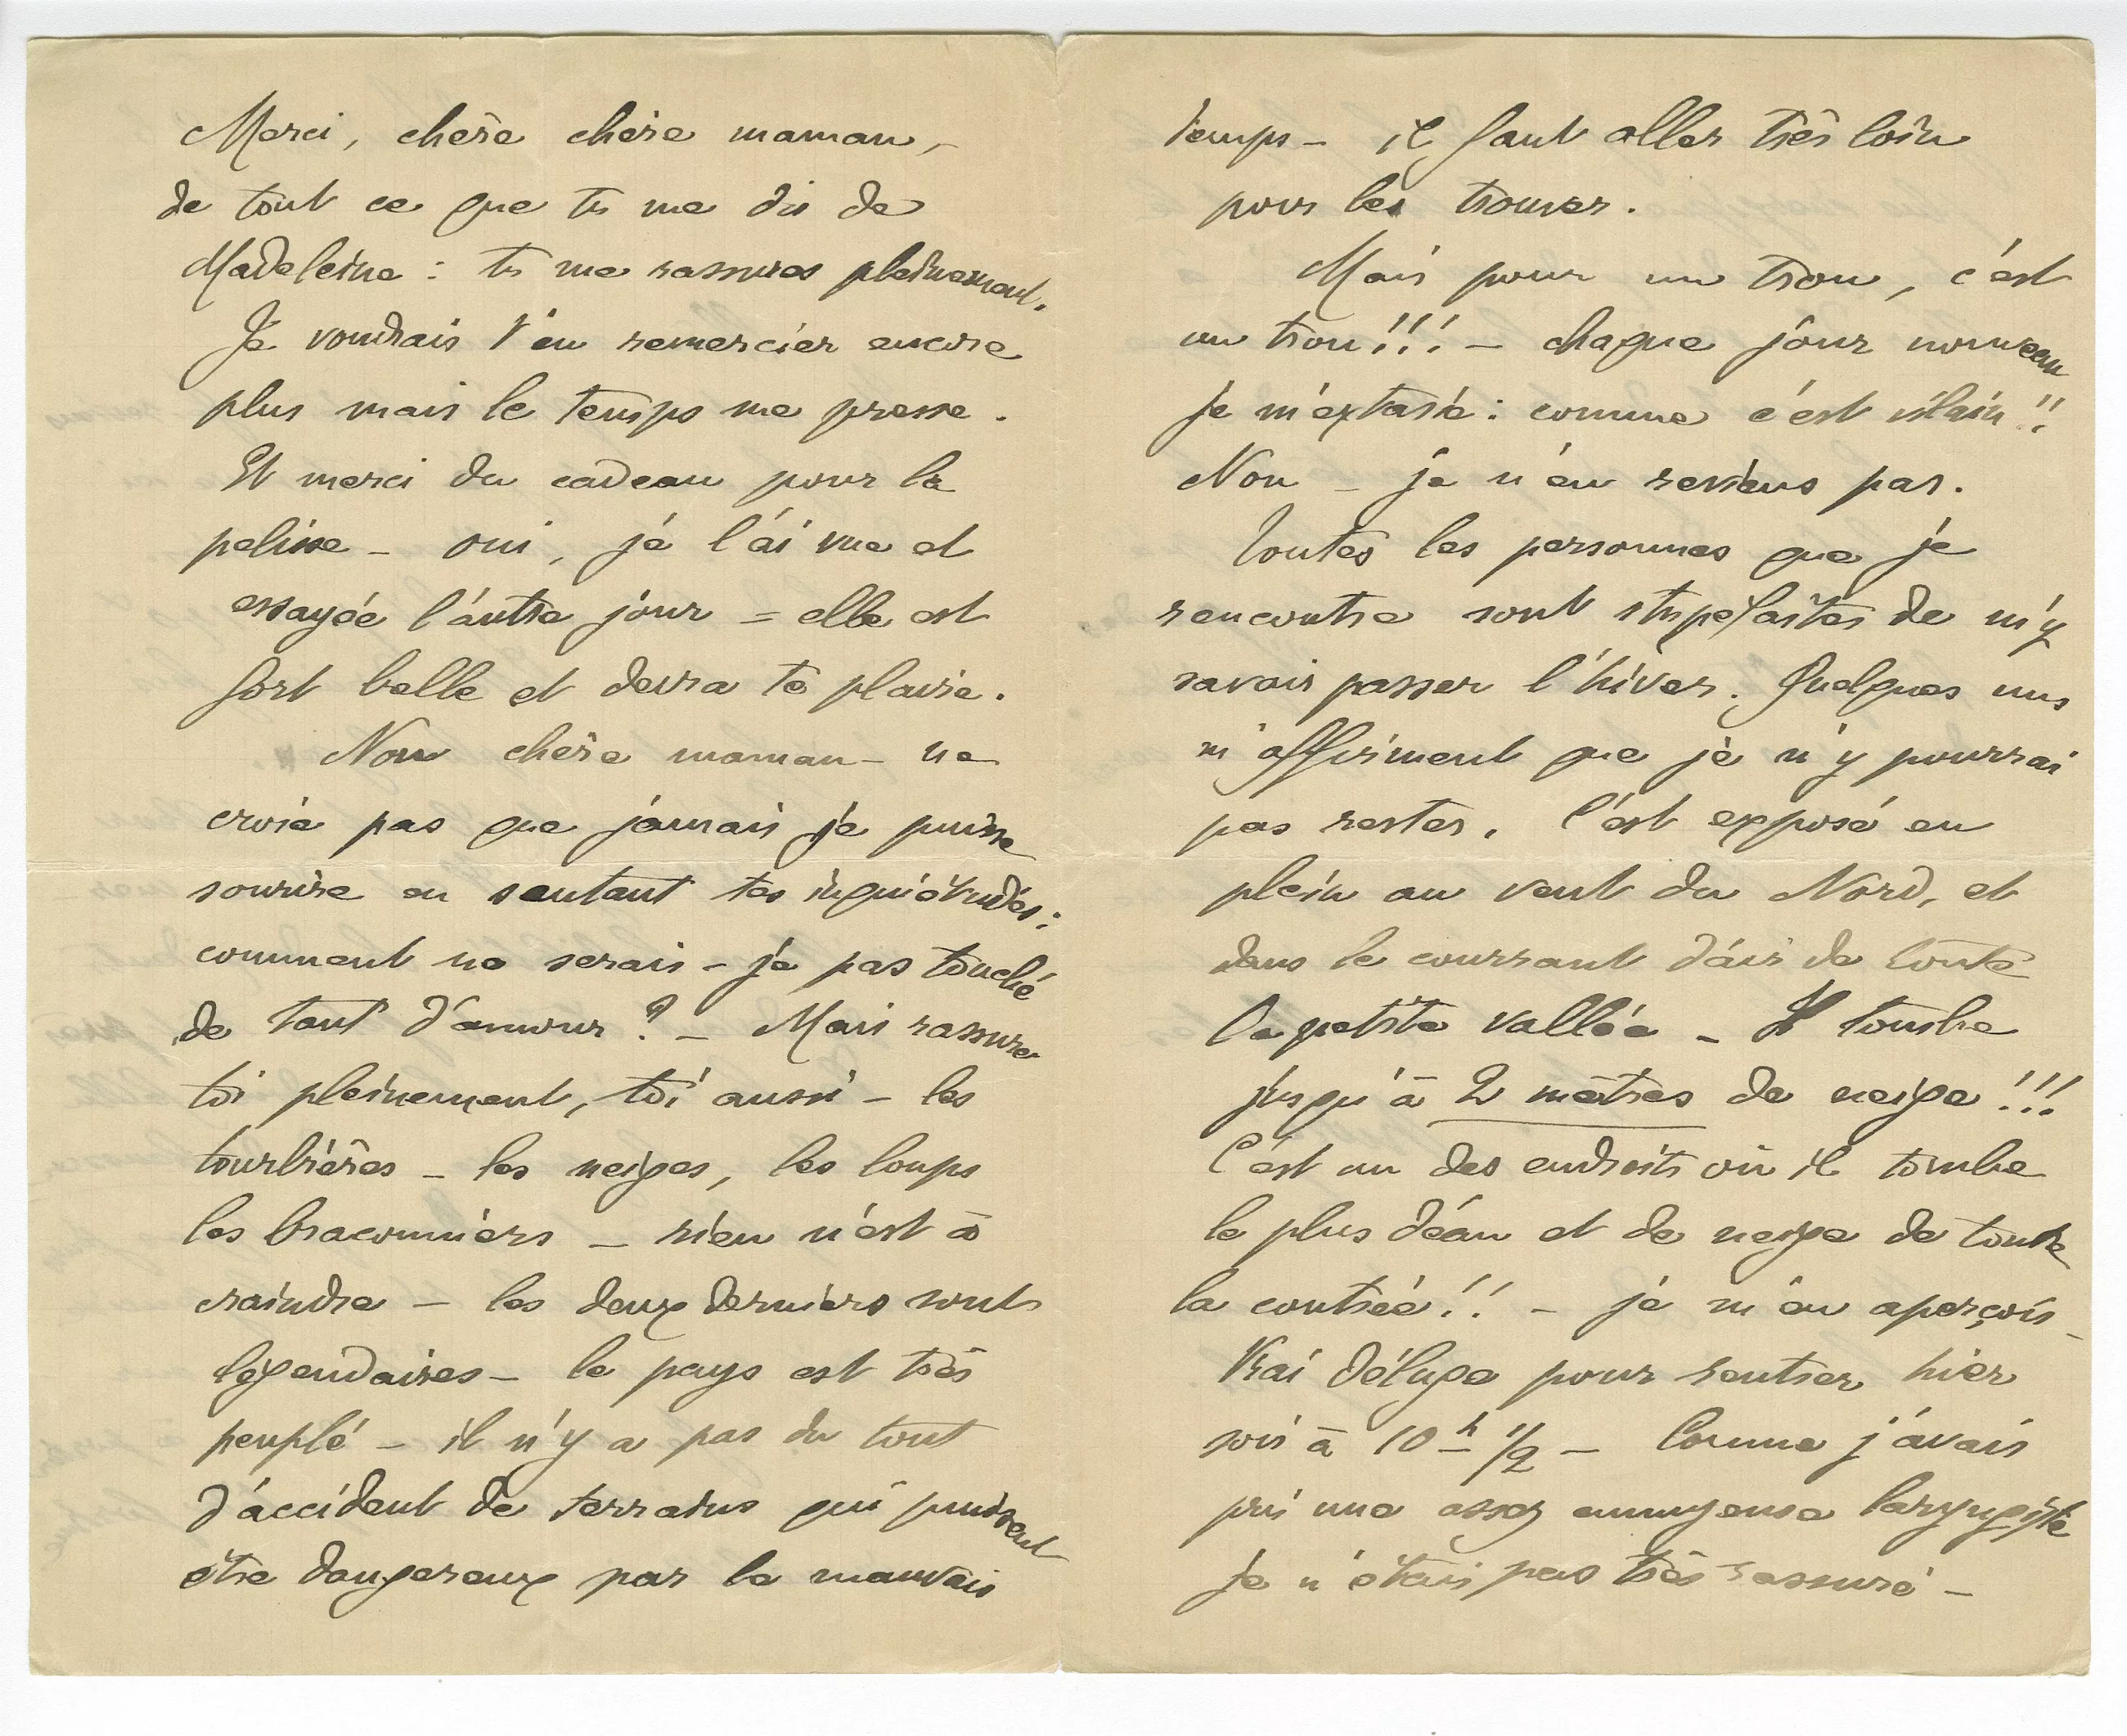 Merci, chère chère maman,
de tout ce que tu me dis de
Madeleine : tu me rassures pleinement.
Je voudrais t'en remercier encore
plus mais le temps me presse.
Et merci du cadeau pour la
pelisse – oui, je l'ai vue et
essayée l'autre jour = elle est
fort belle et devra te plaire.
Non chère maman – ne
croie pas que jamais je puisse
sourire en sentant tes inquiétudes :
comment ne serais-je pas touché
de tant d'amour ? – Mais rassure
toi pleinement, toi aussi – les
tourbières – les neiges, les loups
les braconniers – rien n'est à
craindre – les deux derniers sont
légendaires – le pays est très
peuplé – il n'y a pas du tout
d'accident de terrains qui puissent
être dangereux par le mauvais
temps – il faut aller très loin
pour les trouver.
Mais pour un trou, c'est
un trou!!! – chaque jour nouveau
je m'extasie : comme c'est vilain!!
Non – je n'en reviens pas.
Toutes les personnes que je
rencontre sont stupéfaites de m'y
savoir passer l'hiver. Quelques uns
m'affirment que je n'y pourrai
pas rester. C'est exposé en
plein au vent du Nord, et
dans le courrant d'air de toute
la petite vallée – Il tombe
jusqu'à 2 mètres de neige!!!
C'est un des endroits où il tombe
le plus d'eau et de neige de toute
la contrée!! – je m'en aperçois –
Vrai déluge pour rentrer hier
soir à 10 h 1/2 – Comme j'avais
pris une assez ennuyeuse laryngite
je n'étais pas très rassuré –